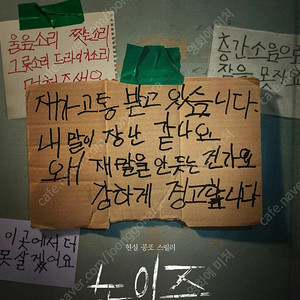 울음소리 짖는소리
그릇소리 드라이기소리
멈춰주세요
층간소음으로
잠을 못자요
제가 고통 받고 있습니다.
내 말이 장난 같나요
왜 제 말을 안 듣는 건가요
강하게 경고합니다
이곳에서 더
못 살겠어요
현실 공포 스릴러
노이즈